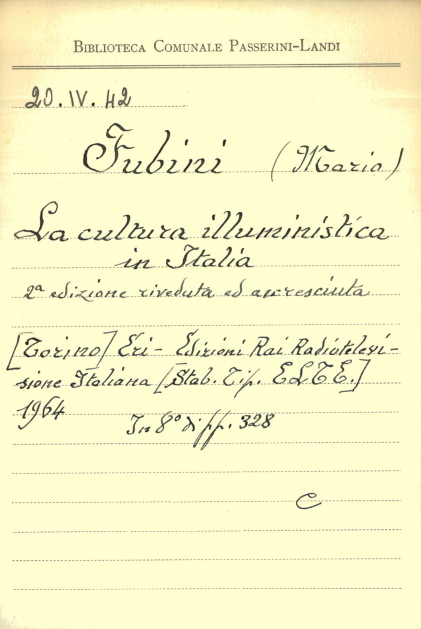 BIBLIOTECA COMUNALE PASSERINI-LANDI
20.IV.42
Fubini (Mario)
La cultura illuministica
in Italia
2ª edizione riveduta ed accresciuta
[Torino] Eri - Edizioni Rai Radiotelevi-
sione Italiana [Stab. Tip. ELTE.]
1964
In 8° di pp. 328
C